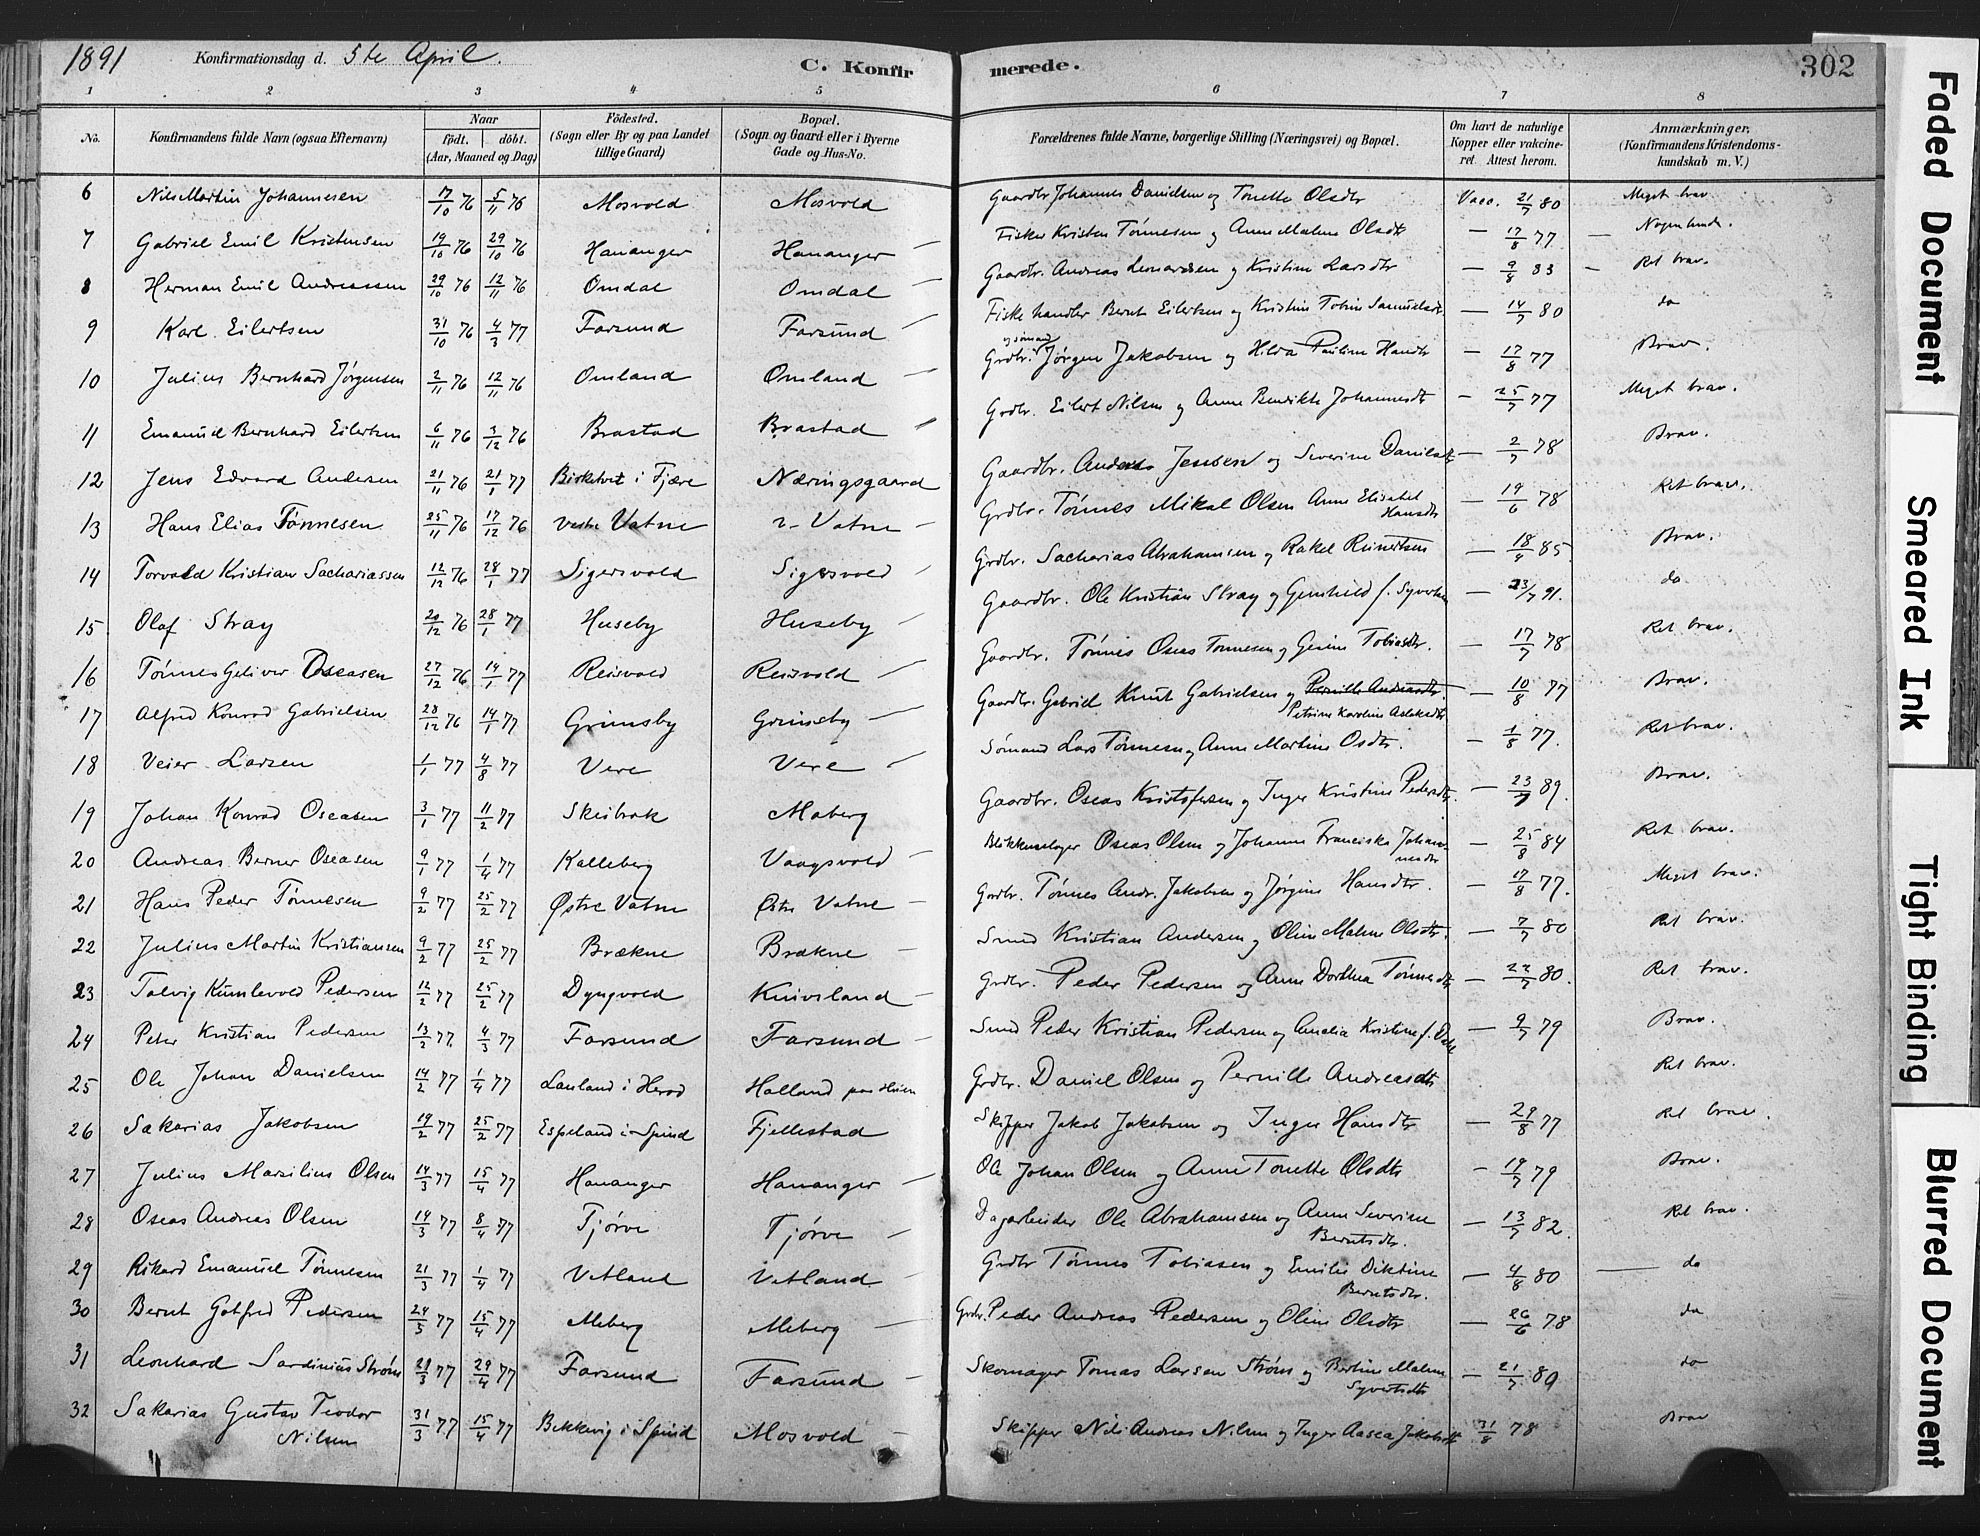 1891 Konfirmationsdag d. 5te April. C. Konfir merede. 302
1 2 3 4 5 6 7 8
No. Konfirmandens fulde Navn (ogsaa Efternavn) Naar født. døbt. (Aar, Maaned og Dag) Fødested. (Sogn eller By og paa Landet tillige Gaard) Bopæl. (Sogn og Gaard eller i Byerne Gade og Hus-No. Forældrenes fulde Navne, borgerlige Stilling (Næringsvei) og Bopæl. Om havt de naturlige Kopper eller vakcineret. Attest herom. Anmærkninger. (Konfirmandens Kristendomskundskab m. V.)
6 Nils Martin Johannesen 17/10 76 5/11 76 Mosvold Mosvold Gaardbr Johannes Danielsen og Tonette Olsdtr Vacc. 21/7 80 Meget brav
7 Gabriel Emil Kristensen 19/10 76 29/10 76 Hananger Hananger — Fisker Kristen Tønnesen og Anne Malene Olsdtr — 17/8 77 — Nogenlunde.
8 Herman Emil Andreassen 29/10 76 12/11 76 Omdal Omdal — Gaardbr. Andreas Leonardsen og Kristine Larsdtr — 9/8 83 — Ret brav.
9 Karl Eilertsen 31/10 76 4/3 77 Farsund Farsund — Fiskehandler Bernt Eilertsen og Kristine Tobine Samuelsdtr. — 14/7 80 do
10 Julius Bernhard Jørgensen 2/11 76 12/11 76 Omland Omland — Grdbr. og sømand Jørgen Jakobsen og Hilda Pauline Hansdtr — 17/8 77 Brav.
11 Emanuel Bernhard Eilertsen 6/11 76 3/12 76 Brastad Brastad — Grdbr. Eilert Nilsen og Anne Bendikte Johannesdtr — 25/7 77 Meget brav.
12 Jens Edvard Andersen 21/11 76 21/1 77 Birketvet i Fjære Næringsgaard Gaardbr. Anders Jensen og Severine Danielsdtr — 2/7 78 Brav.
13 Hans Elias Tønnesen 25/11 76 17/12 76 Vestre Vatne v. Vatne — Grdbr. Tønnes Mikal Olsen Anne Elisabet Hansdtr — 19/6 78 Ret brav.
14 Torvald Kristian Sachariassen 12/12 76 28/1 77 Sigersvold Sigersvold — Grdbr. Sacharias Abrahamsen og Rakel Reinertsen — 18/4 85 Brav.
15 Olaf Stray 20/12 76 28/1 77 Huseby Huseby — Gaardbr. Ole Kristian Stray og Gunhild f. Syvertsen — 23/7 91. do
16 Tønnes Geliver Oseasen 27/12 76 14/1 77 Reisvold Reisvold — Gaardbr. Tønnes Oseas Tønnesen og Gesine Tobiasdtr. — 17/7 78 Ret brav.
17 Alfred Konrad Gabrielsen 28/12 76 14/1 77 Grimsby Grimsby — Gaardbr. Gabriel Knut Gabrielsen og Pernille Andreasdtr. Petrine Karoline Aslaksdtr — 10/8 77 Brav.
18 Veier Larsen 1/1 77 4/8 77 Vere Vere — Sømand Lars Tønnesen og Anne Martine Osdtr. — 1/8 77. Ret brav.
19 Johan Konrad Oseasen 3/1 77 11/2 77 Skeibrok Maberg Gaardbr. Oseas Kristofersen og Inger Kristine Pedersdtr. — 23/7 89. Brav.
20 Andreas Berner Oseasen 9/1 77 1/4 77 Kalleberg Vaagsvold — Blikkenslager Oseas Olsen og Johanne Franciska Johannesdtr — 25/8 84 Ret brav.
21 Hans Peder Tønnesen 9/2 77 25/2 77 Østre Vatne Østre Vatne — Grdbr. Tønnes Andr. Jakobsen og Jørgine Hansdtr. — 17/8 77. Meget brav.
22 Julius Martin Kristiansen 9/2 77 25/2 77 Brækne Brækne — Smed Kristian Andersen og Oline Malene Olsdtr. — 7/7 80 Ret brav.
23 Talvig Kumlevold Pedersen 12/2 77 25/2 77 Dyngvold Knivsland — Grdbr. Peder Pedersen og Anne Dorthea Tønnesdtr — 22/7 80. Ret brav.
24 Peter Kristian Pedersen 13/2 77 4/3 77 Farsund Farsund — Smed Peder Kristian Pedersen og Amalia Kristine f. Dahl — 9/7 79 Brav.
25 Ole Johan Danielsen 14/2 77 1/4 77 Lauland i Herod Halland paa Huseby Grdbr. Daniel Olsen og Pernille Andreasdtr Ret brav.
26 Sakarias Jakobsen 19/2 77 25/2 77 Espeland i Spind Fjellestad Skipper Jakob Jakobsen og Inger Hansdtr — 29/8 77 Ret brav.
27 Julius Marsilius Olsen 14/3 77 15/4 77 Hananger Hananger — Ole Johan Olsen og Anne Tonette Olsdtr — 19/7 79 Brav.
28 Oseas Andreas Olsen 14/3 77 8/4 77 Tjørve Tjørve — Dagarbeider Ole Abrahamsen og Anne Severine Berntsdtr. — 13/7 82. Ret brav.
29 Rikard Emanuel Tønnesen 21/3 77 1/4 77 Vetland Vetland — Grdbr Tønnes Tobiassen og Emilie Diktine Berntsdtr. — 4/8 80 — do
30 Bernt Gotfred Pedersen 24/3 77 15/4 77 Meberg Meberg — Grdbr. Peder Andreas Pedersen og Oline Olsdtr — 26/6 78 do
31 Leonhard Sardinius Strøm 28/3 77 29/4 77 Farsund Farsund — Skomager Tomas Larsen Strøm og Bertine Malene Syvertsdtr — 21/7 89 do
32 Sakarias Gustav Teodor Nilsen 31/3 77 15/4 77 Bekkevig i Spind Mosvold — Skipper Nils Andreas Nilsen og Inger Aasea Jakobsdtr 31/8 78 Brav
Faded Document
Smeared Ink
Tight Binding
Blurred Document